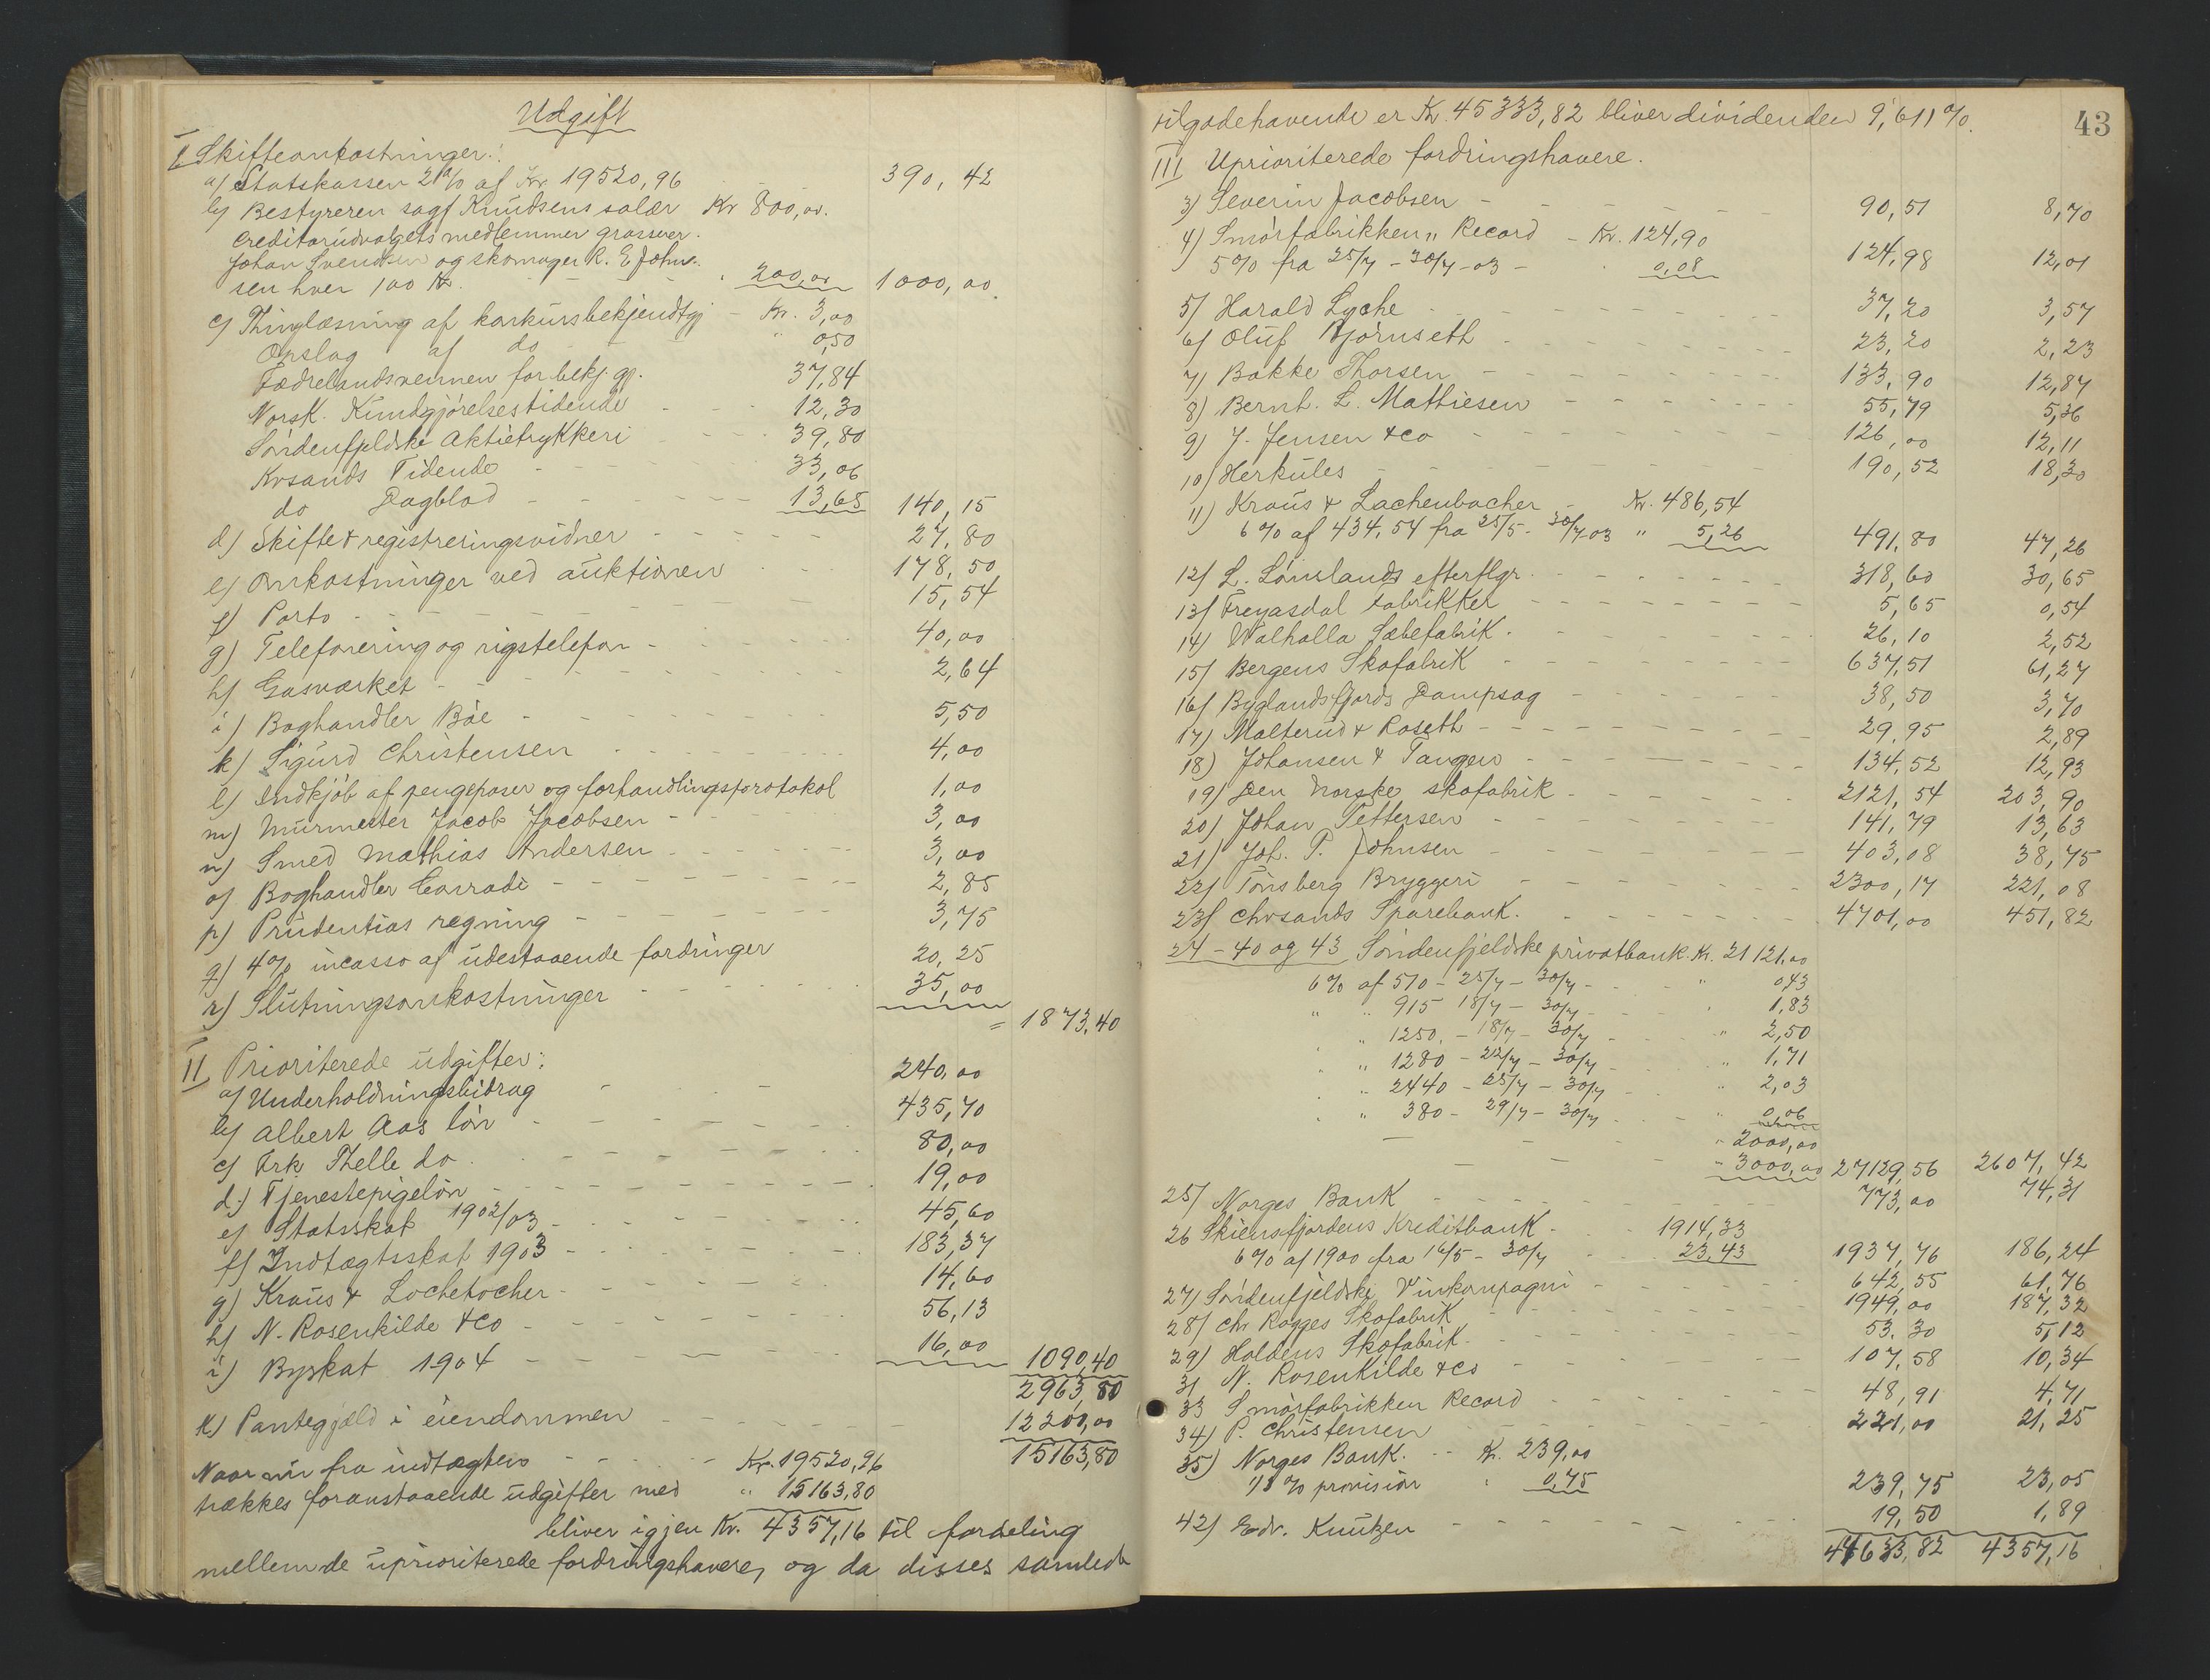 Udgift
I Skifteomkostninger:
a) Statskassen 2% af Kr 19520,96 390,42
b) Bestyreren sagf Knudsens salær Kr 800,00.
Creditorudvalgets medlemmer grosserer
Johan Svendsen og skomager R. E John-
sen hver 100 Kr. 200,00 1000,00
c) Thinglæsning af konkursbekjendtgj - Kr. 3,00
Opslag af do " 0,50
Fædrelandsvennen for bekj.gj. 37,84
Norsk. Kundgjørelsestidende 12,30
Søndenfjeldske Aktietrykkeri 39,80
Krsands Tidende 33,06
do Dagblad 13,65 140,15
d) Skifte & registreringsvidner 27,80
e) Omkostninger ved auktionen 178,50
f) Porto 15,54
g) Telefonering og rigstelefon 40,00
h) Gasværket 2,64
i) Boghandler Bøe 5,50
k) Sigurd Christensen 4,00
l) Indkjøb af pengeposer og forhandlingsprotokol 1,00
m) Murmester Jacob Jacobsen 3,00
n) Smed Mathias Andersen 3,00
o) Boghandler Conradi 2,85
p) Prudentias regning 3,75
q) 4% incasso af udestaaende fordringer 20,25
r) Slutningsomkostninger 35,00
= 1873,40
II Prioriterede udgifter:
a) Underholdningsbidrag 240,00
b) Albert Aas løn 435,70
c) Frk Thelle do 80,00
d.) Tjenestepigeløn 19,00
e) Statsskat 1902/03 45,60
f) Indtægtsskat 1903 183,37
g) Kraus & Lochetocher 14,60
h) N. Rosenkilde & Co 56,13
i) Byskat 1904 16,00 1090,40
2963,80
k) Pantegjæld i eiendommen 12200,00
15163,80
Naar nu fra indtægten Kr. 19520,96
trækkes foranstaaende udgifter med " 15163,80
bliver igjen Kr. 4357,16 til fordeling
mellem de uprioriterede fordringshavere, og da disses samlede
43
tilgodehavende er Kr. 45333,82 bliver dividenden 9,611%.
III Uprioriterede fordringshavere.
3) Severin Jacobsen 90,51 8,70
4) Smørfabrikken „ Record - Kr. 124,90
5% fra 25/7 - 30/7-03 - 0,08 124,98 12,01
5) Harald Lyche 37,20 3,57
6) Oluf Bjørnseth 23,20 2,23
7) Bakke Thorsen 133,90 12,87
8) Bernh. L. Mathiesen 55,79 5,36
9) J. Jensen & Co 126,00 12,11
10) Herkules 190,52 18,30
11) Kraus & Lachenbacher - Kr. 486,54
6% af 434,54 fra 25/5 - 30/7-03 " 5,26 491,80 47,26
12) L. Lømslands efterflgr. 318,60 30,65
13) Freyasdal fabrikker 5,65 0,54
14) Walhalla Sæbefabrik. 26,10 2,52
15) Bergens Skofabrik 637,51 61,27
16) Byglandsfjords Dampsag 38,50 3,70
17) Malterud & Roseth 29,95 2,89
18) Johansen & Tangen 134,52 12,93
19) Den Norske skofabrik 2121,54 203,90
20) Johan Pettersen 141,79 13,63
21) Joh. P. Johnsen 403,08 38,75
22) Tønsberg Bryggeri 2300,17 221,08
23) Chrsands Sparebank. 4701,00 451,82
24 - 40 og 43 Søndenfjeldske privatbank. Kr. 21121,00
6% af 510 - 25/7 - 30/7 - " 0,43
" " 915 18/7 - 30/7 1,83
" 1250. - 18/7 - 30/7 " 2,50
" 1280 - 22/7 - 30/7 " 1,71
" 2440 - 25/7 - 30/7 " 2,03
" 380 - 29/7 - 30/7 " 0,06
- 2000,00
- 3000,00 27129,56 2607,42
25) Norges Bank 773,00 74,31
26 Skiensfjordens Kreditbank 1914,33
6% af 1900 fra 16/5 - 30/7 23,43 1937,76 186,24
27) Søndenfjeldske Vinkompagni 642,55 61,76
28) Chr Rogges Skofabrik 1949,00 187,32
29) Haldens Skofabrik. 53.30 5,12
31 N. Rosenkilde & Co 107,58 10,34
33 Smørfabrikken Record 48,91 4,71
34) P. Christensen 221,00 21,25
35) Norges Bank. Kr. 239,00
1/3 % provision 0,75 239,75 23,05
42) Edv. Knutzen 19,50 1,89
44633,82 4357,16